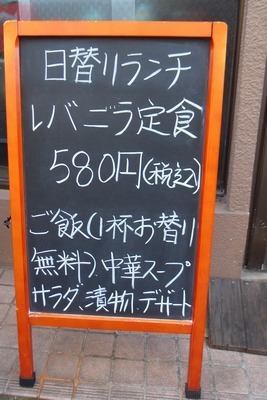 日替りランチ
レバニラ定食
580円(税込)
ご飯(1杯お替り
無料)、中華スープ
サラダ、漬物、デザート